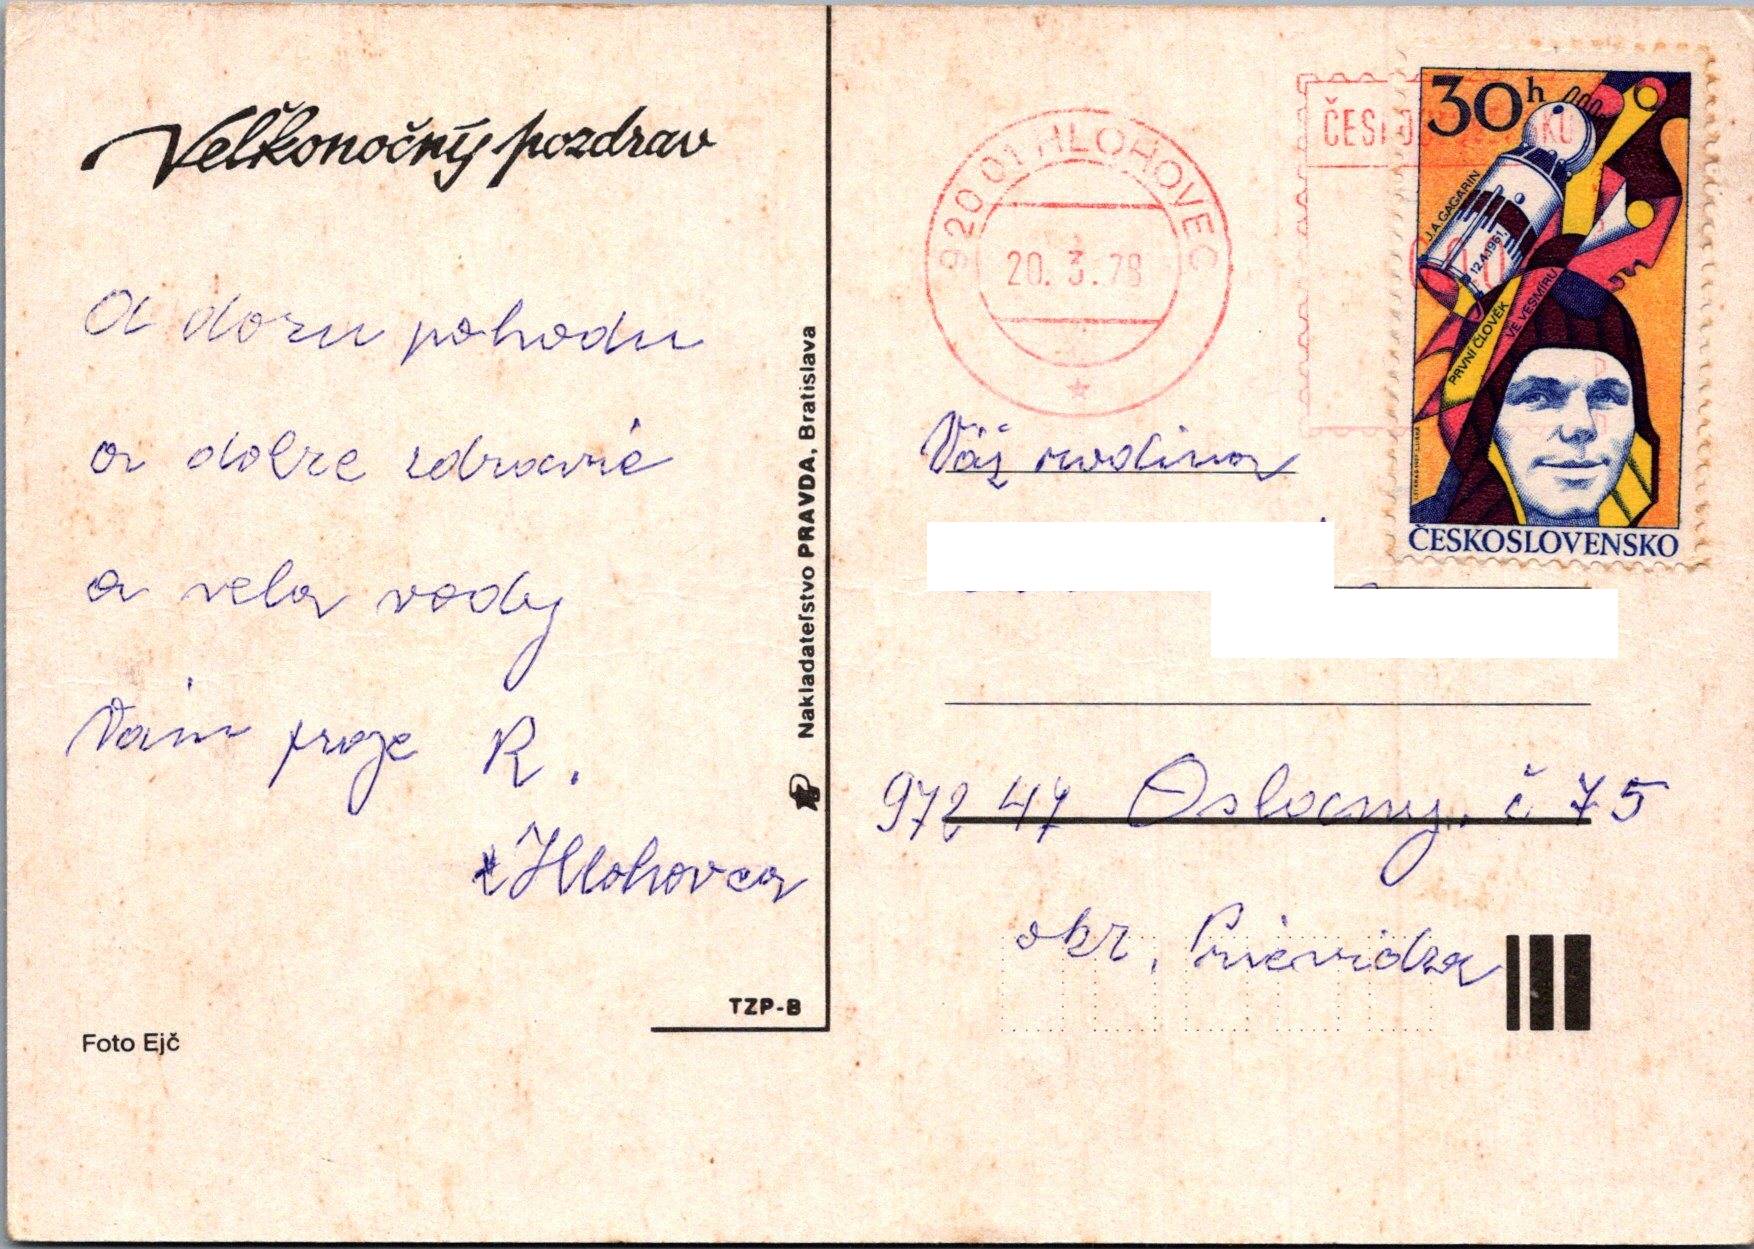 Veľkonočný pozdrav
A dozu pohodu
a dobre zdravie
a vela vody
Vám praje R.
z Hlohovca
Foto Ejč
TZP-B
Nakladateľstvo PRAVDA, Bratislava
920 01 HLOHOVEC
20. 3. 78
30h
J.A. GAGARIN
12.4.1961
PRVNÍ ČLOVĚK
VE VESMÍRU
ČESKOSLOVENSKO
Váž rodina
972 47 Oslany č 75
okr. Prievidza